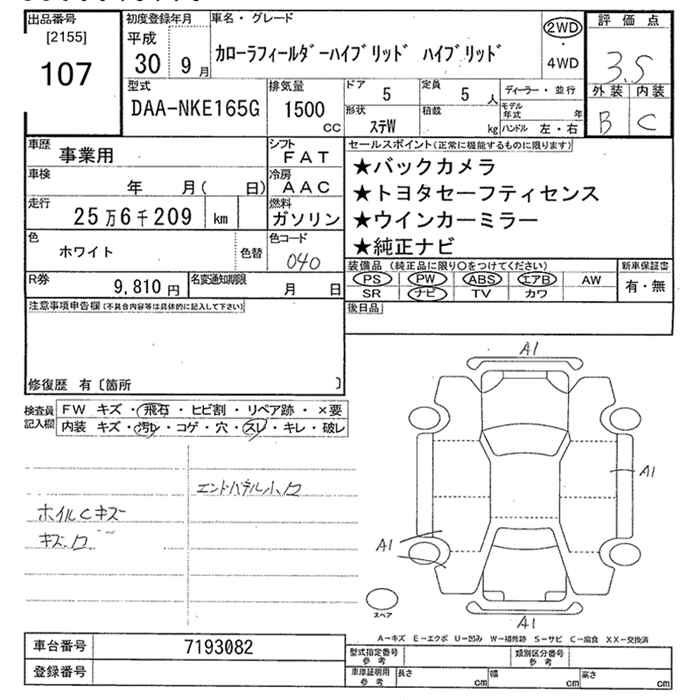 出品番号
[2155]
107
初度登録年月
平成
30 9 月
車名・グレード
カローラフィールダーハイブリッド ハイブリッド
2WD
・
4WD
評価点
3.5
外装 内装
B C
型式
DAA-NKE165G
排気量
1500
CC
ドア
5
定員
5 人
形状
ステW
積載
kg
ディーラー・並行
モデル
年式 年
ハンドル 左・右
車歴
事業用
シフト
FAT
車検
年 月( 日)
冷房
AAC
走行
25万6千209 km
燃料
ガソリン
色
ホワイト
色替
色コード
040
R券
9,810 円
名変通知期限
月 日
セールスポイント(正常に機能するものに限ります)
★バックカメラ
★トヨタセーフティセンス
★ウインカーミラー
★純正ナビ
装備品(純正品に限り○をつけてください)
PS PW ABS エアB AW
SR ナビ TV カワ
新車保証書
有・無
後日品
注意事項申告欄(不具合内容等は具体的に記入して下さい)
修復歴 有〔箇所 〕
検査員
記入欄
FW キズ・飛石・ヒビ割・リペア跡・×要
内装 キズ・汚レ・コゲ・穴・スレ・キレ・破レ
エンドパネル小凹
ホイルCキズ
キズ凹
A1
A1
A1
A1
スペア
A-キズ E-エクボ U-凹み W-補修跡 S-サビ C-腐食 XX-交換済
車台番号
7193082
登録番号
型式指定番号
参考
類別区分番号
参考
車庫証明用
参考
長さ cm
幅 cm
高さ cm